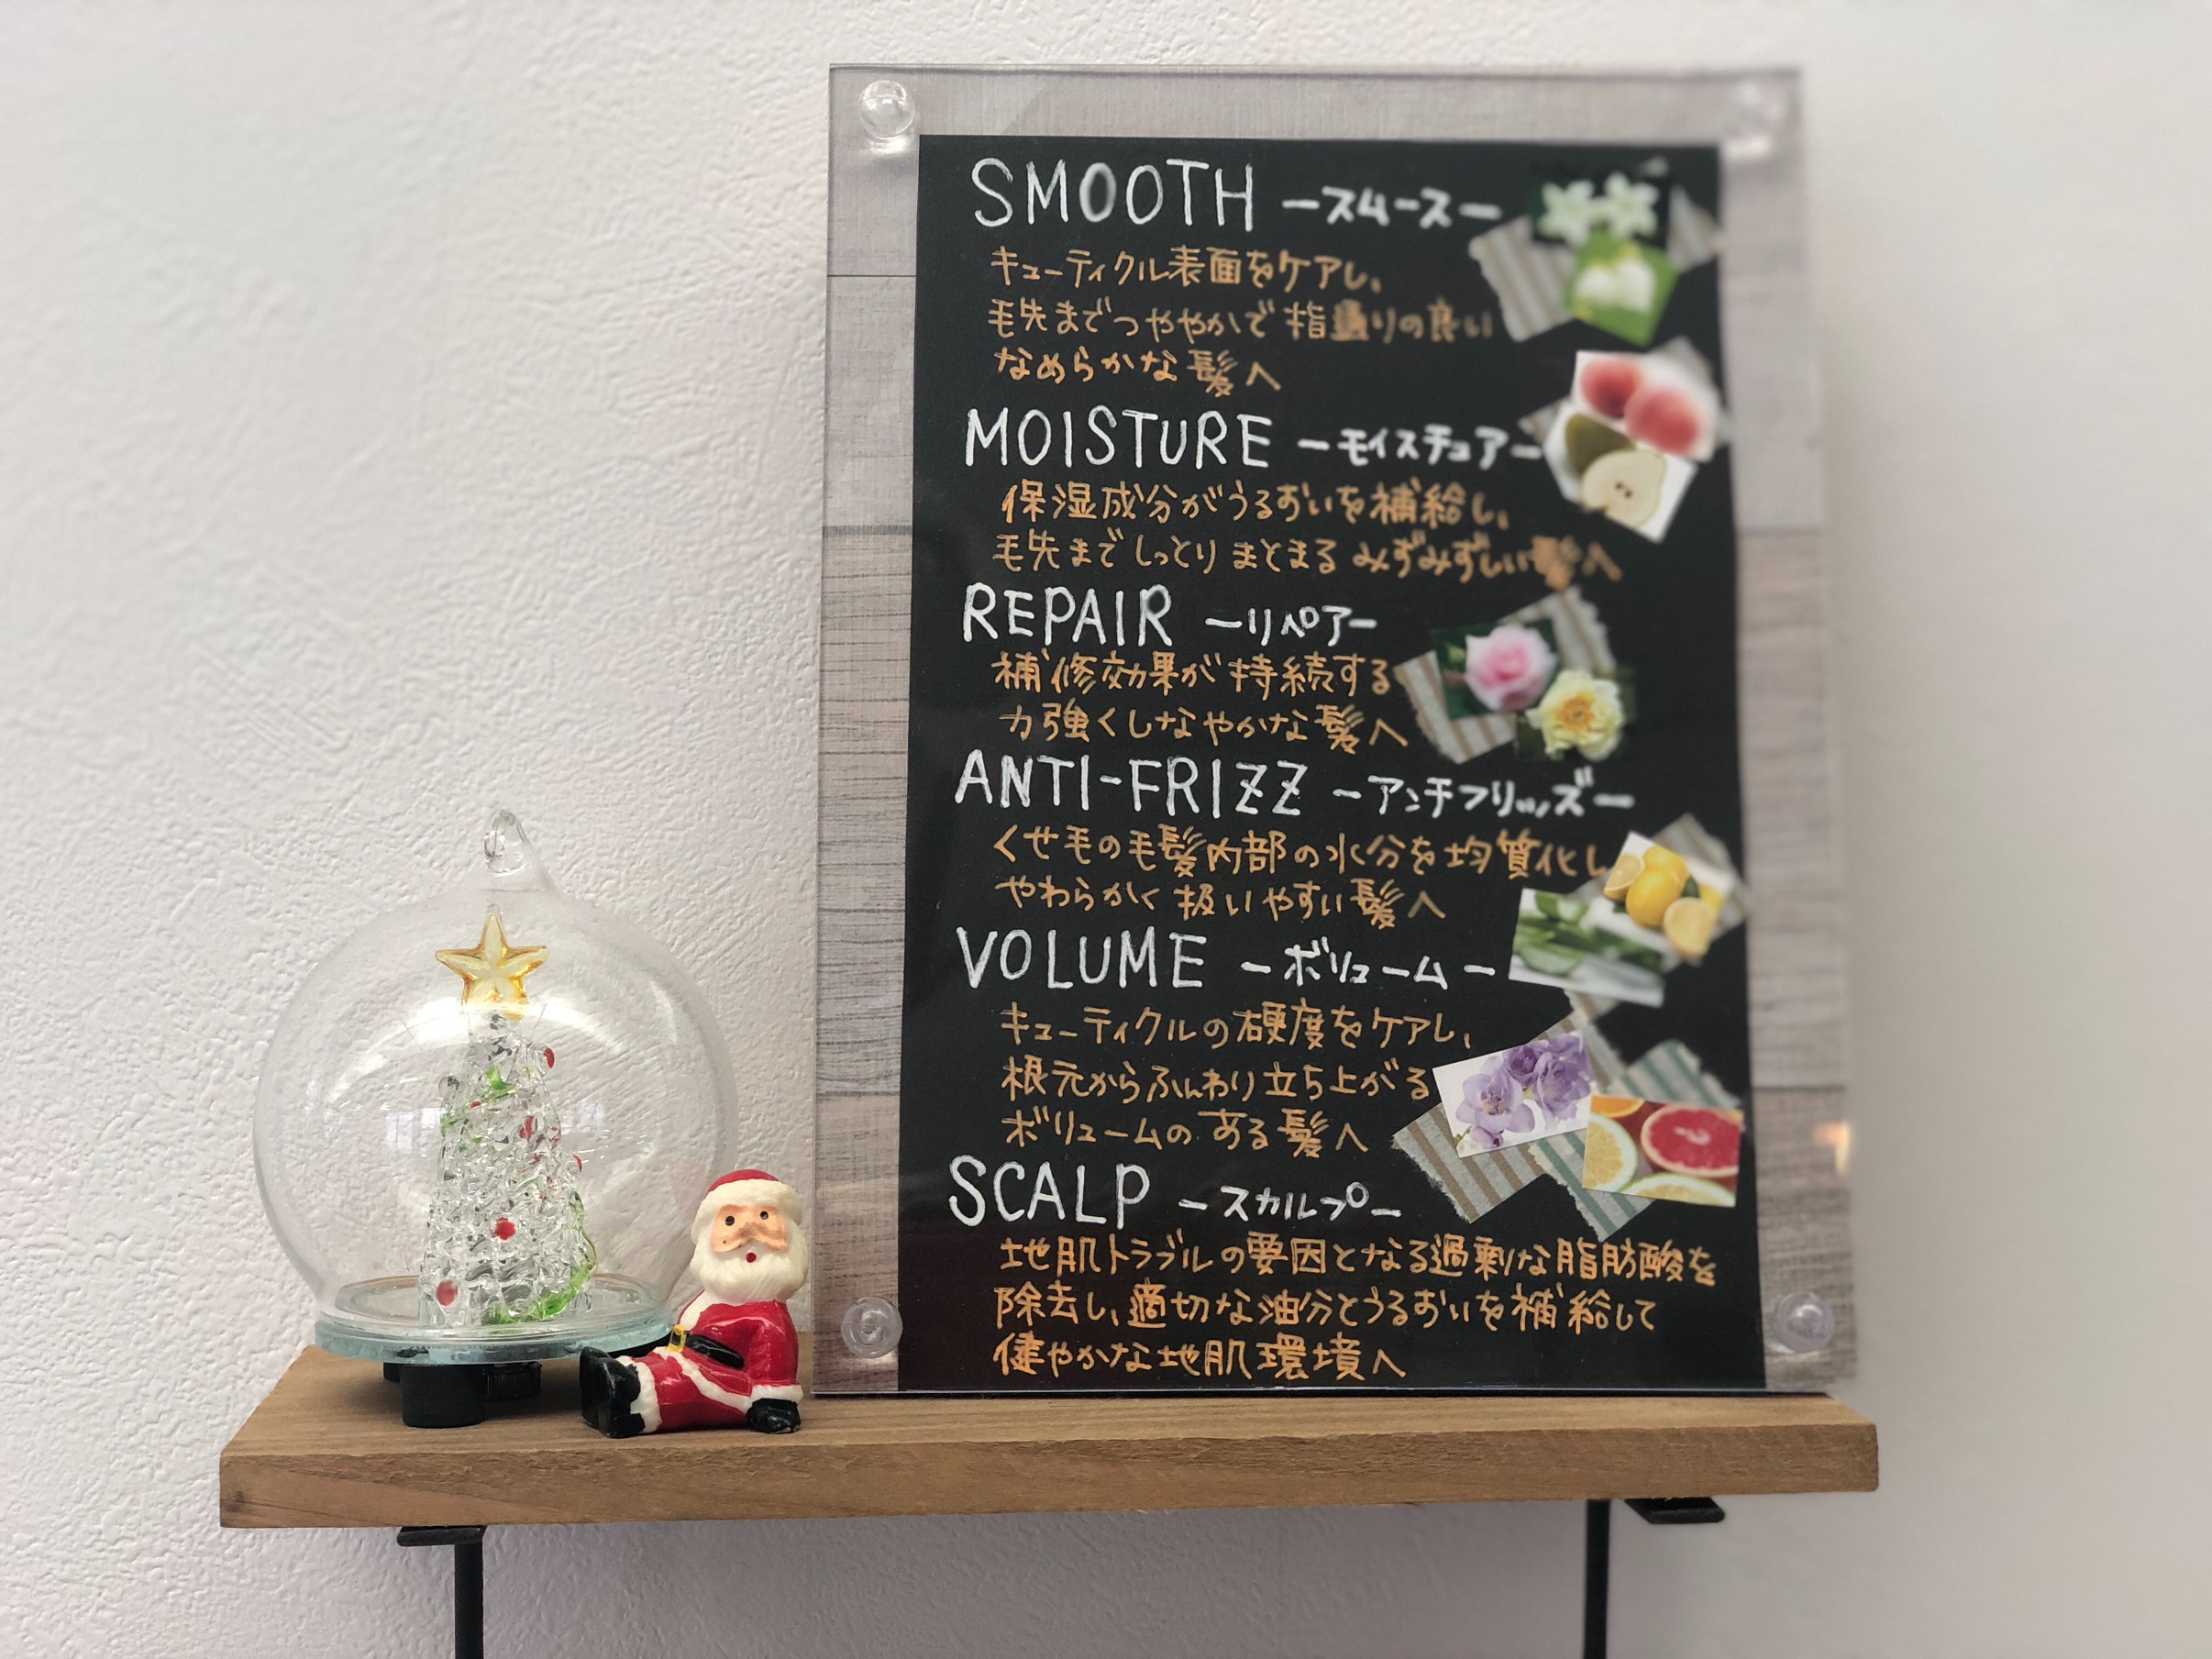 SMOOTH ースムースー
キューティクル表面をケアし、
毛先までつややかで指通りの良い
なめらかな髪へ
MOISTURE ーモイスチュアー
保湿成分がうるおいを補給し、
毛先までしっとりまとまるみずみずしい髪へ
REPAIR ーリペアー
補修効果が持続する
力強くしなやかな髪へ
ANTI-FRIZZ ーアンチフリッズー
くせ毛の毛髪内部の水分を均質化し
やわらかく扱いやすい髪へ
VOLUME ーボリュームー
キューティクルの硬度をケアし、
根元からふんわり立ち上がる
ボリュームのある髪へ
SCALP ースカルプー
地肌トラブルの要因となる過剰な脂肪酸を
除去し、適切な油分とうるおいを補給して
健やかな地肌環境へ